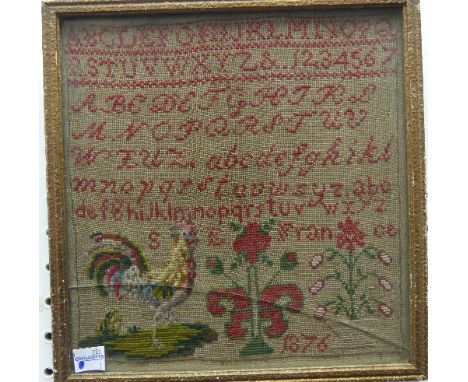 ABCDEFGHIJKLMNOPQ
RSTUVWXYZ& 1234567
ABCDEFGHIJKL
MNOPQRSTUV
WXYZ. abcdefghikl
mnopqrstuvwxyz. abc
defghijklmnopqrstuvwxyz
S E France
1876
CHILCOTTS